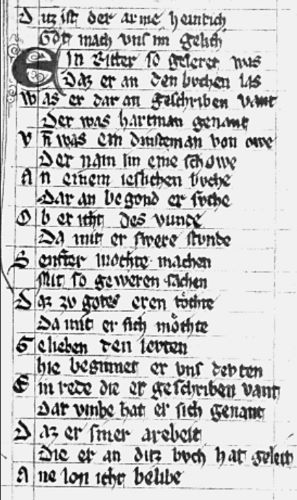 Ditz ist der arme heinrich
Got mach vns im gelich
EIn Ritter so geleret was
Daz er an den bvchen las
Was er dar an geschriben vant
Der was hartman genant
Vn̄ was ein dinstman von owe
Der nam im eine schowe
An einem ieslichen bvche
Dar an begond er svche
Ob er icht des vunde
Da mit er swere stunde
Senfter mochte machen
Mit so geweren sachen
Daz zv gotes eren tochte
Da mit er sich mochte
Gelieben den levten
hie beginnet er vns devten
Ein rede die er geschriben vant
Dar vmbe hat er sich genant
Daz er siner arebeit
Die er an ditz bvch hat geleit
Ane lon icht belibe